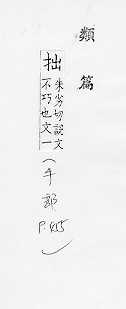 類篇
拙
朱劣切說文
不巧也文一
(手部
P.455